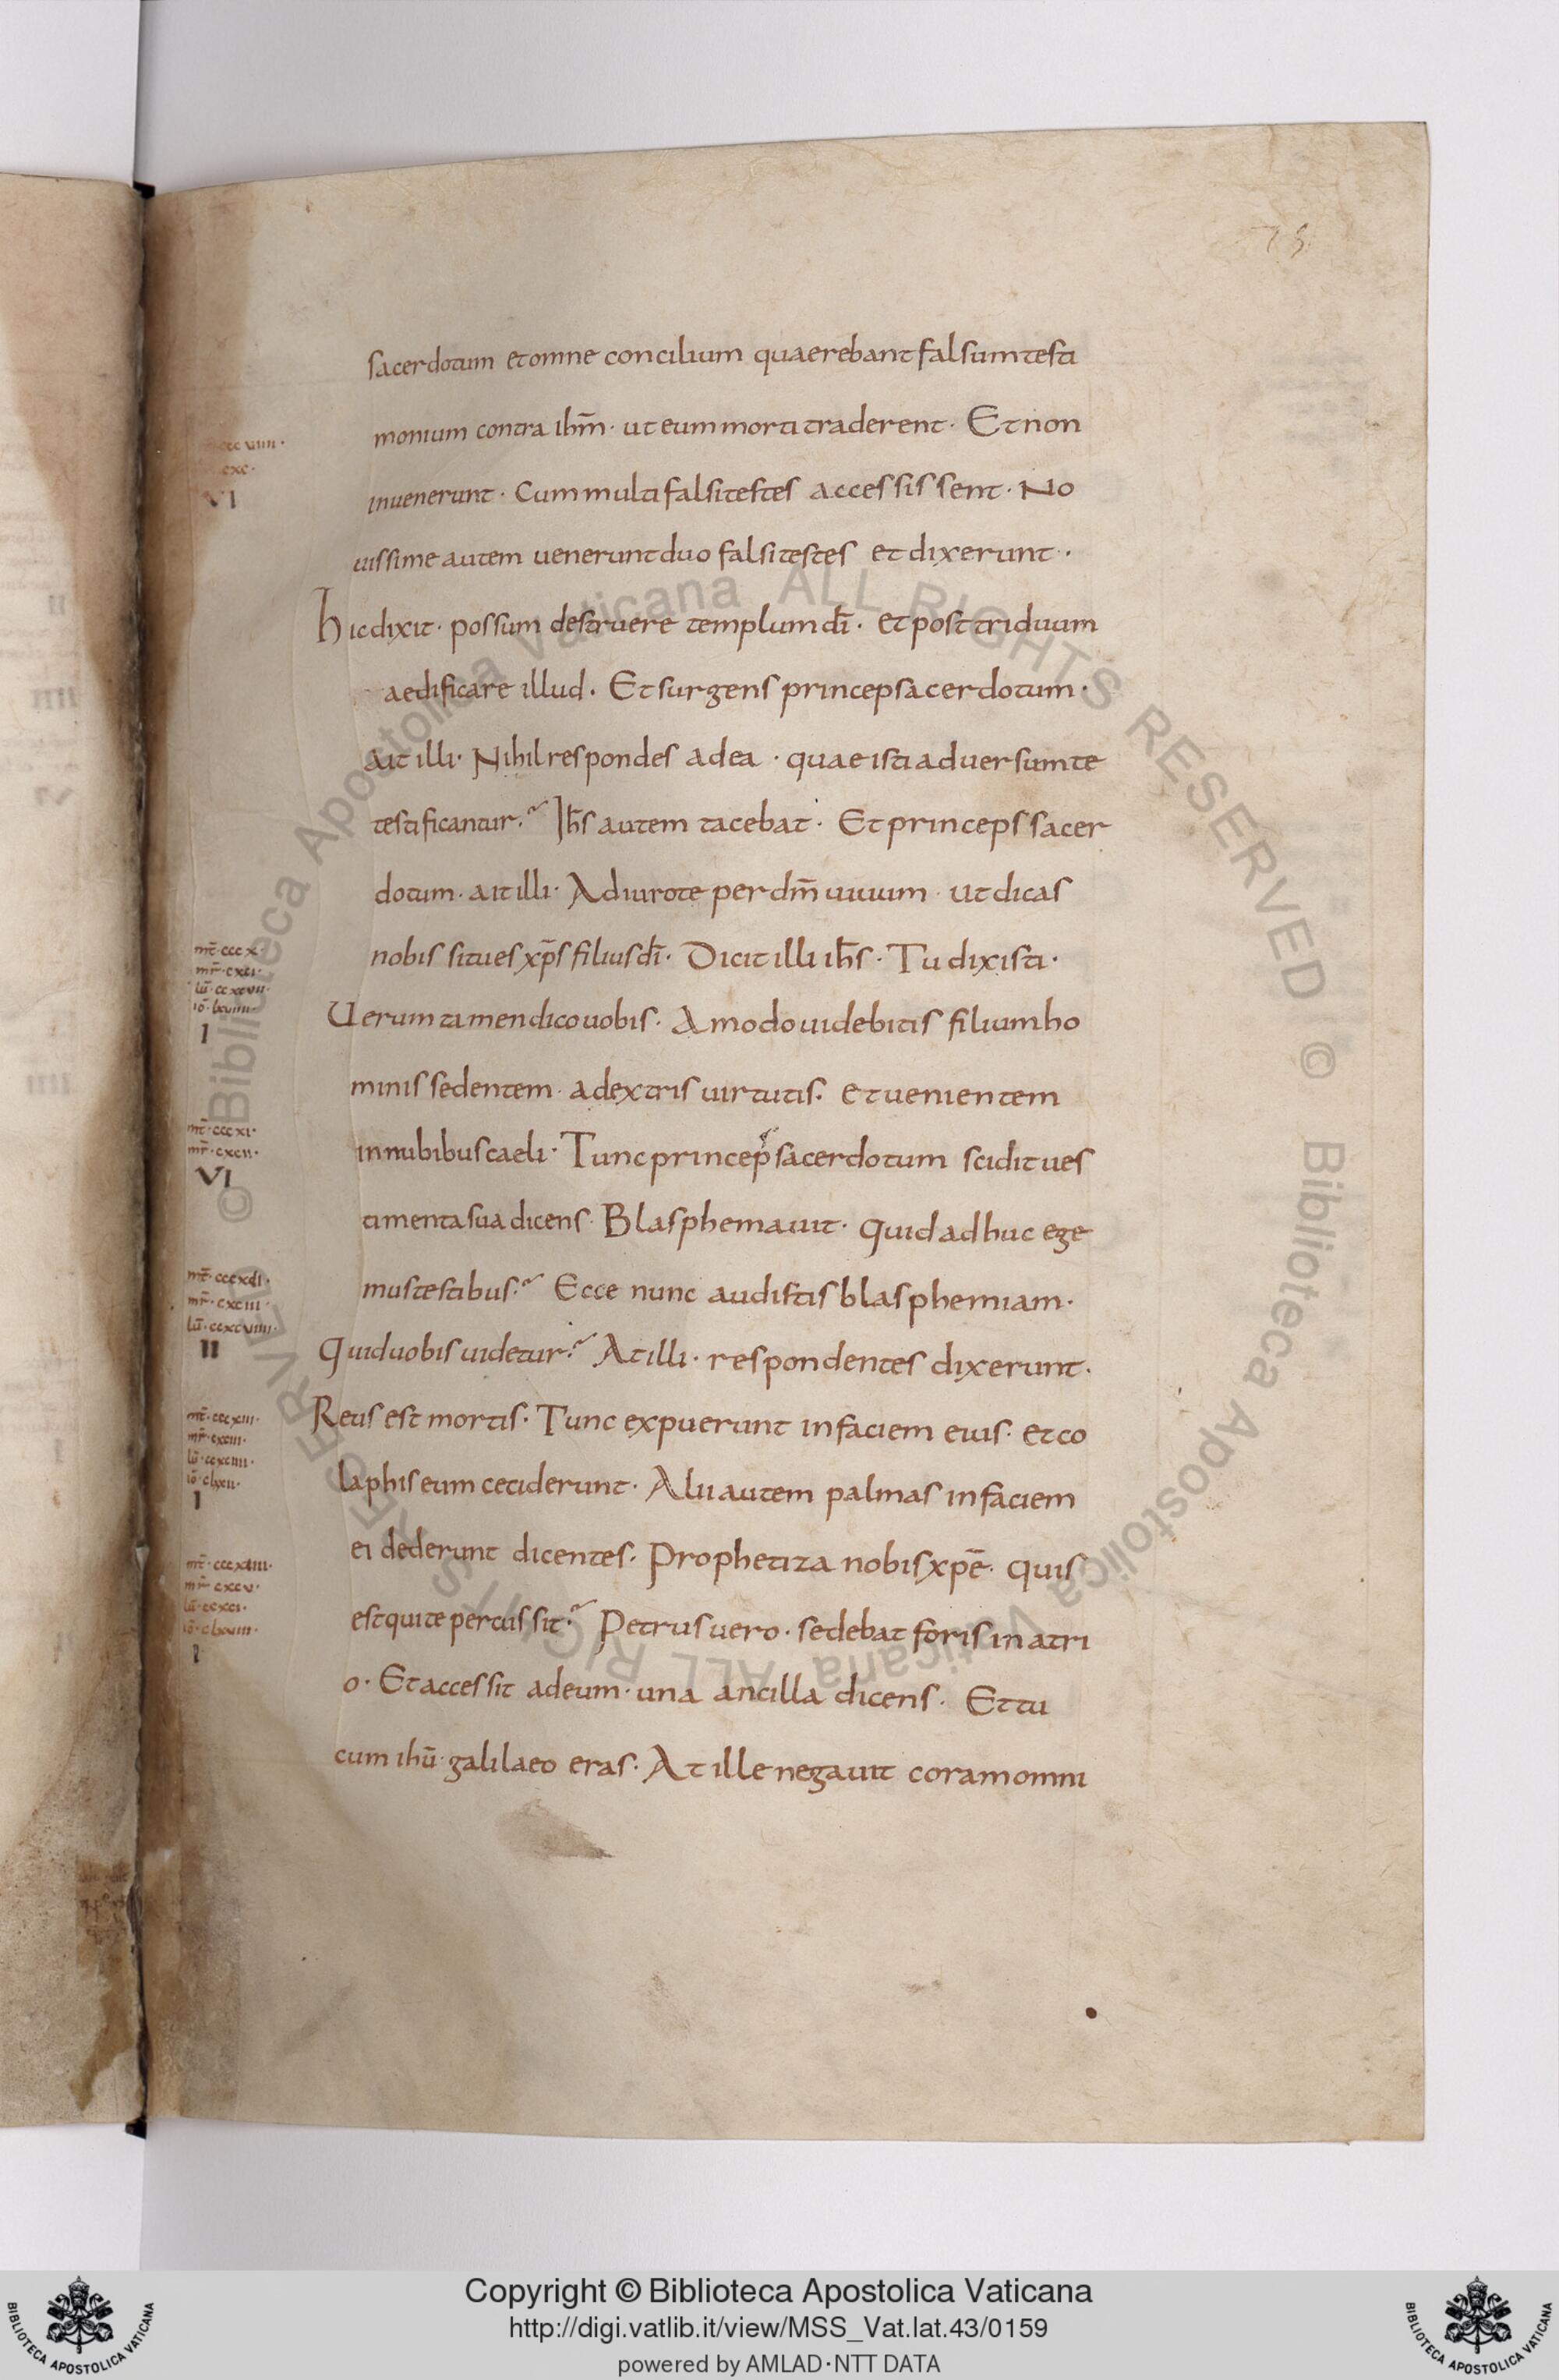 75
sacerdotum et omne concilium quaerebant falsum testi
monium contra ihm̄· ut eum morti traderent· Et non
·cccviiii·
cxc·
VI
inuenerunt· Cum multi falsi testes accessissent· No
uissime autem uenerunt duo falsi testes et dixerunt·
hic dixit· possum destruere templum dī· et post triduum
aedificare illud· Et surgens princep sacerdotum·
ait illi· Nihil respondes ad ea· quae isti aduersum te
testificantur? Ihs̄ autem tacebat· Et princeps sacer
dotum· ait illi· Adiuro te per dm̄ uiuum· ut dicas
mt̄·cccx·
mr̄·cxci·
lū·ccxcvii·
iō·lxviiii·
I
nobis si tu es xp̄s filius dī· Dicit illi ihs̄· Tu dixisti·
Uerum tamen dico uobis· Amodo uidebitis filium ho
minis sedentem· a dextris uirtutis· et uenientem
mt̄·cccxi·
mr̄·cxcii·
VI
in nubibus caeli· Tunc princep s sacerdotum scidit ues
timenta sua dicens· Blasphemauit· quid adhuc ege
mt̄·cccxii·
mr̄·cxciii·
lū·ccxcviiii·
II
mus testibus? Ecce nunc audistis blasphemiam·
quid uobis uidetur? At illi· respondentes dixerunt·
mt̄·cccxiii·
mr̄·cxciiii·
lū·ccxciiii·
iō·clxxii·
I
Reus est mortis· Tunc expuerunt in faciem eius· et co
laphis eum ceciderunt· Alii autem palmas in faciem
mt̄·cccxiiii·
mr̄·cxcv·
lū·ccxci·
I
ei dederunt dicentes· Prophetiza nobis xpē· quis
est qui te percussit? Petrus uero· sedebat foris in atri
o· Et accessit ad eum· una ancilla dicens· Et tu
cum ihū· galilaeo eras· At ille negauit coram omni
© Biblioteca Apostolica Vaticana ALL RIGHTS RESERVED © Biblioteca Apostolica Vaticana ALL RIGHTS RESERVED
Copyright © Biblioteca Apostolica Vaticana
http://digi.vatlib.it/view/MSS_Vat.lat.43/0159
powered by AMLAD·NTT DATA
BIBLIOTECA APOSTOLICA VATICANA
BIBLIOTECA APOSTOLICA VATICANA